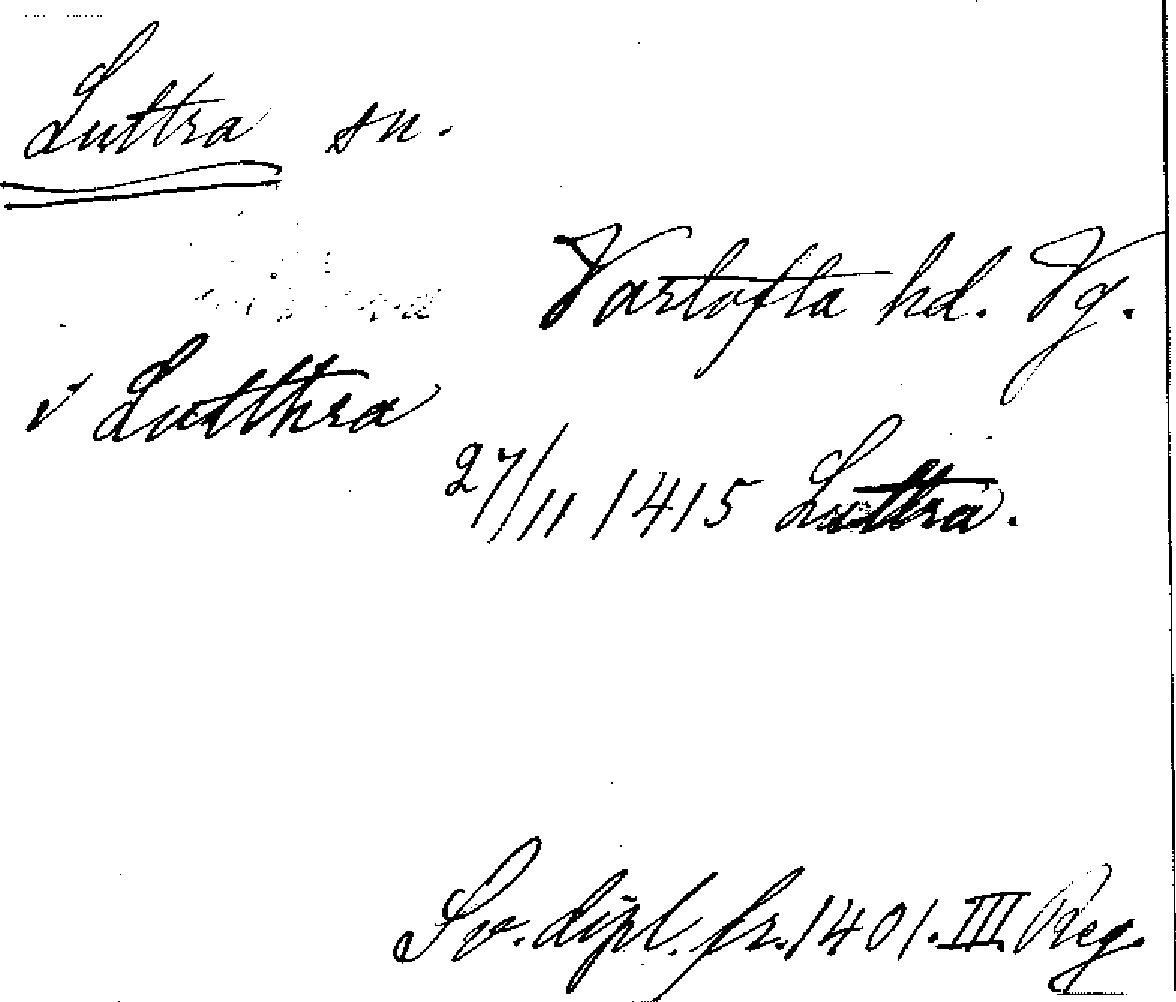 Luttra sn.
Vartofta hd. Vg.
i Lutthra
27/11 1415 Luttra.
Sv. dipl. fr. 1401. III Reg.